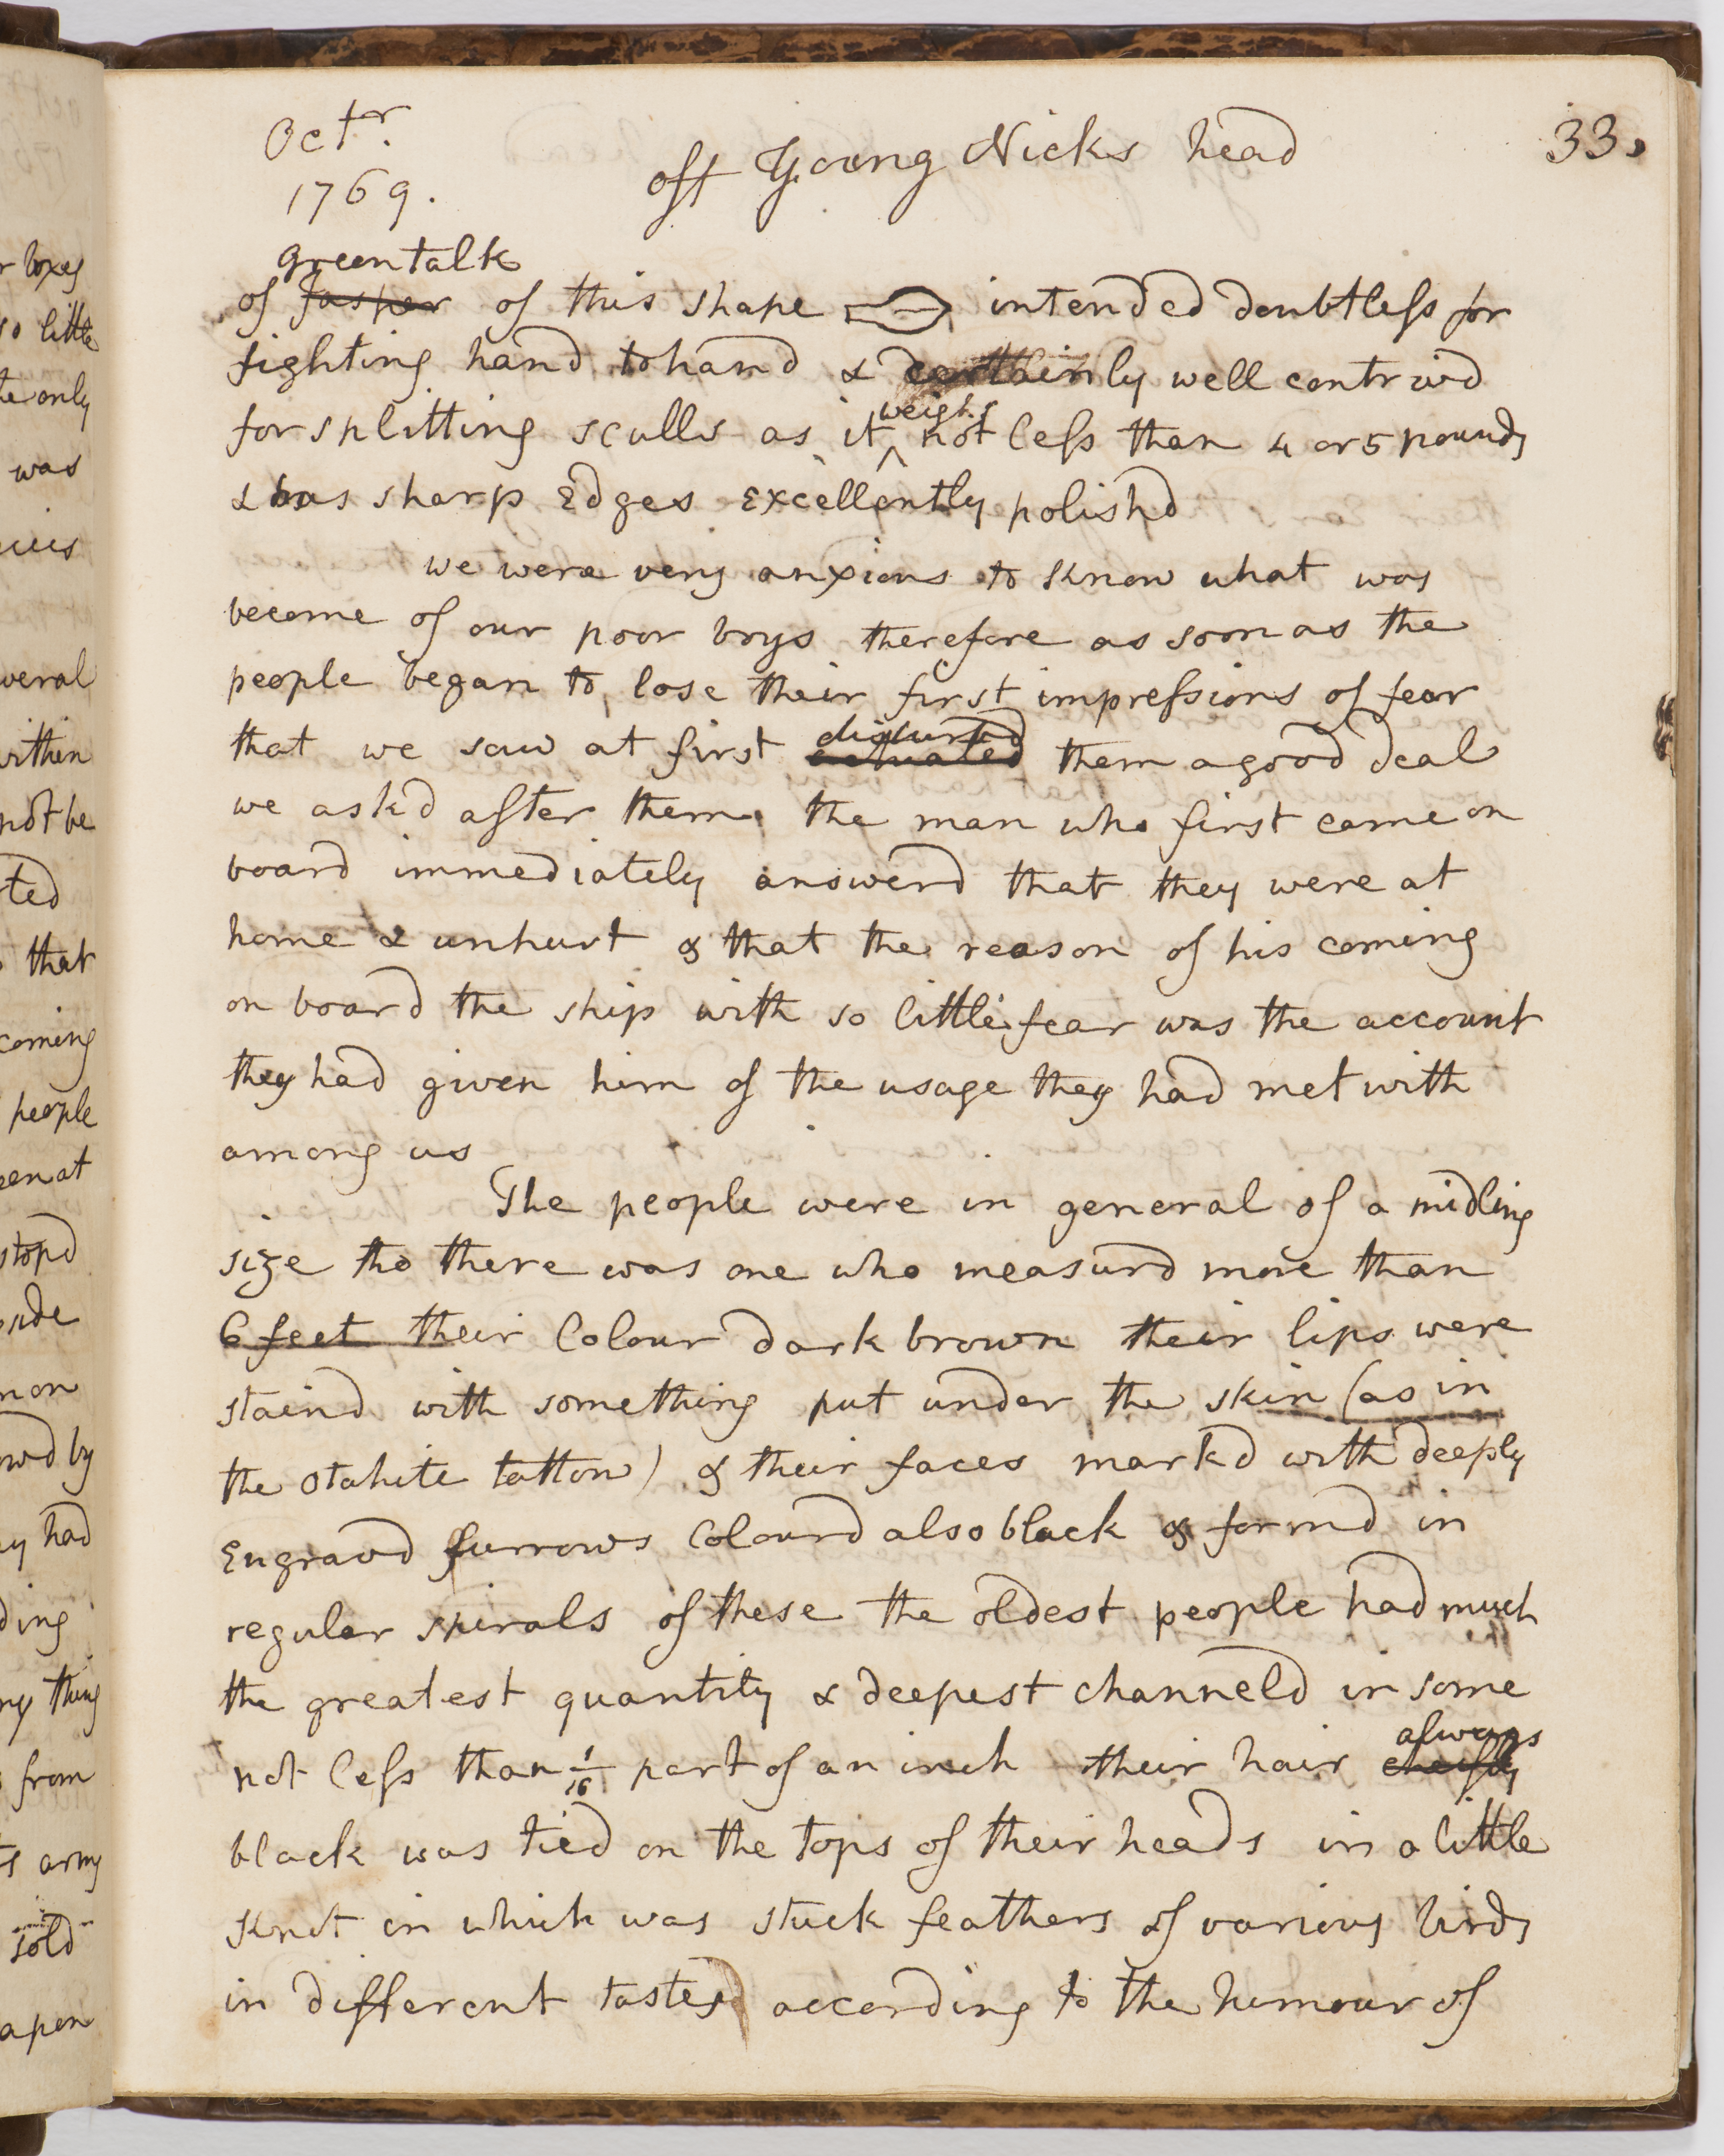 Octr.
1769.
off Young Nicks head
33.
green talk
of Jasper of this shape intended doubtless for
fighting hand to hand & certainly well contrivd
weighs
for splitting sculls as it ^ not less than 4 or 5 pounds
& has sharp Edges Excellently polishd
we were very anxious to know what was
become of our poor boys therefore as soon as the
people began to lose their first impressions of fear
disturbd
that we saw at first actuated them a good deal
we askd after them. the man who first came on
board immediately answerd that they were at
home & unhurt & that the reason of his coming
on board the ship with so little fear was the account
they had given him of the usage they had met with
among us
The people were in general of a midling
size tho there was one who measurd more than
6 feet their Colour dark brown their lips were
staind with something put under the skin (as in
the Otahite tattow) & their faces markd with deeply
Engravd furrows Colourd also black & formd in
regular spirals of these the oldest people had much
the greatest quantity & deepest channeld in some
always
not less than 1/16 part of an inch their hair cheifly
black was tied on the tops of their heads in a little
knot in which was stuck feathers of various birds
in different tastes according to the humour of
r boxes
so little
te only
was
veral
within
not be
ted
that
coming
people
een at
stopd
side
n on
owd by
ey had
ding
ny thing
from
ts army
sold
apon